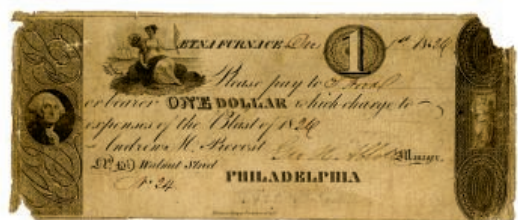 ÆTNA FURNACE Dec 1 1st 1826
Please pay to
or bearer ONE DOLLAR which charge to
expenses of the Blast of 1826
Andrew M. Prevost Mangr.
Walnut Street
No 24 PHILADELPHIA